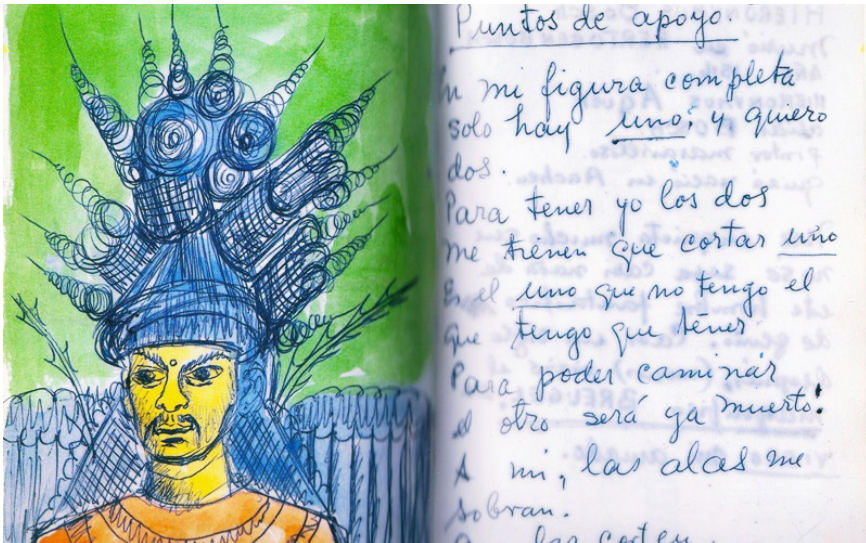 Puntos de apoyo.
En mi figura completa
solo hay uno; y quiero
dos.
Para tener yo los dos
me tienen que cortar uno
Es el uno que no tengo el
que tengo que tener
Para poder caminar
el otro será ya muerto!
A mi, las alas me
sobran.
las corten